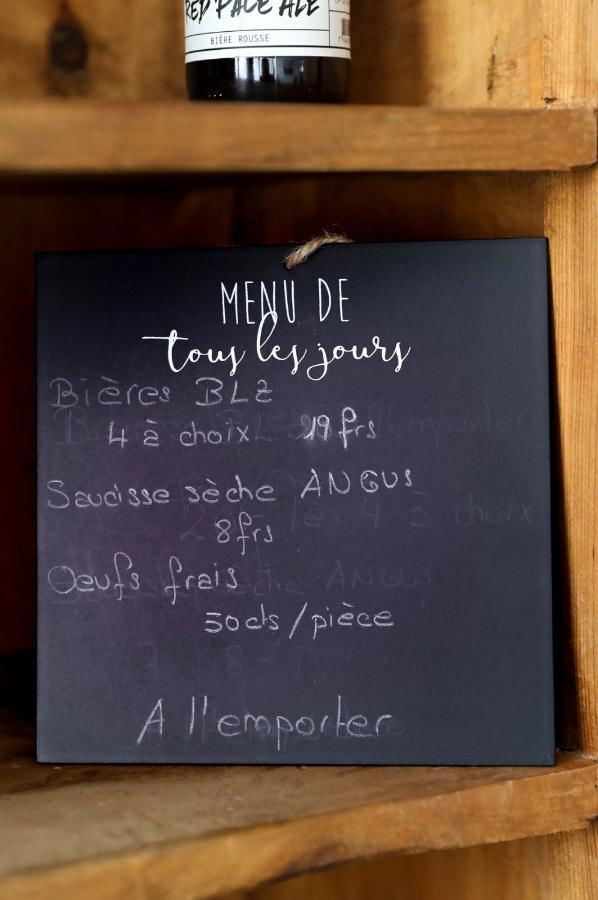 RED PALE ALE
BIÈRE ROUSSE
MENU DE
tous les jours
Bières BLZ
4 à choix 19 frs
Saucisse sèche ANGUS
8 frs
Oeufs frais
50 cts / pièce
A l'emporter